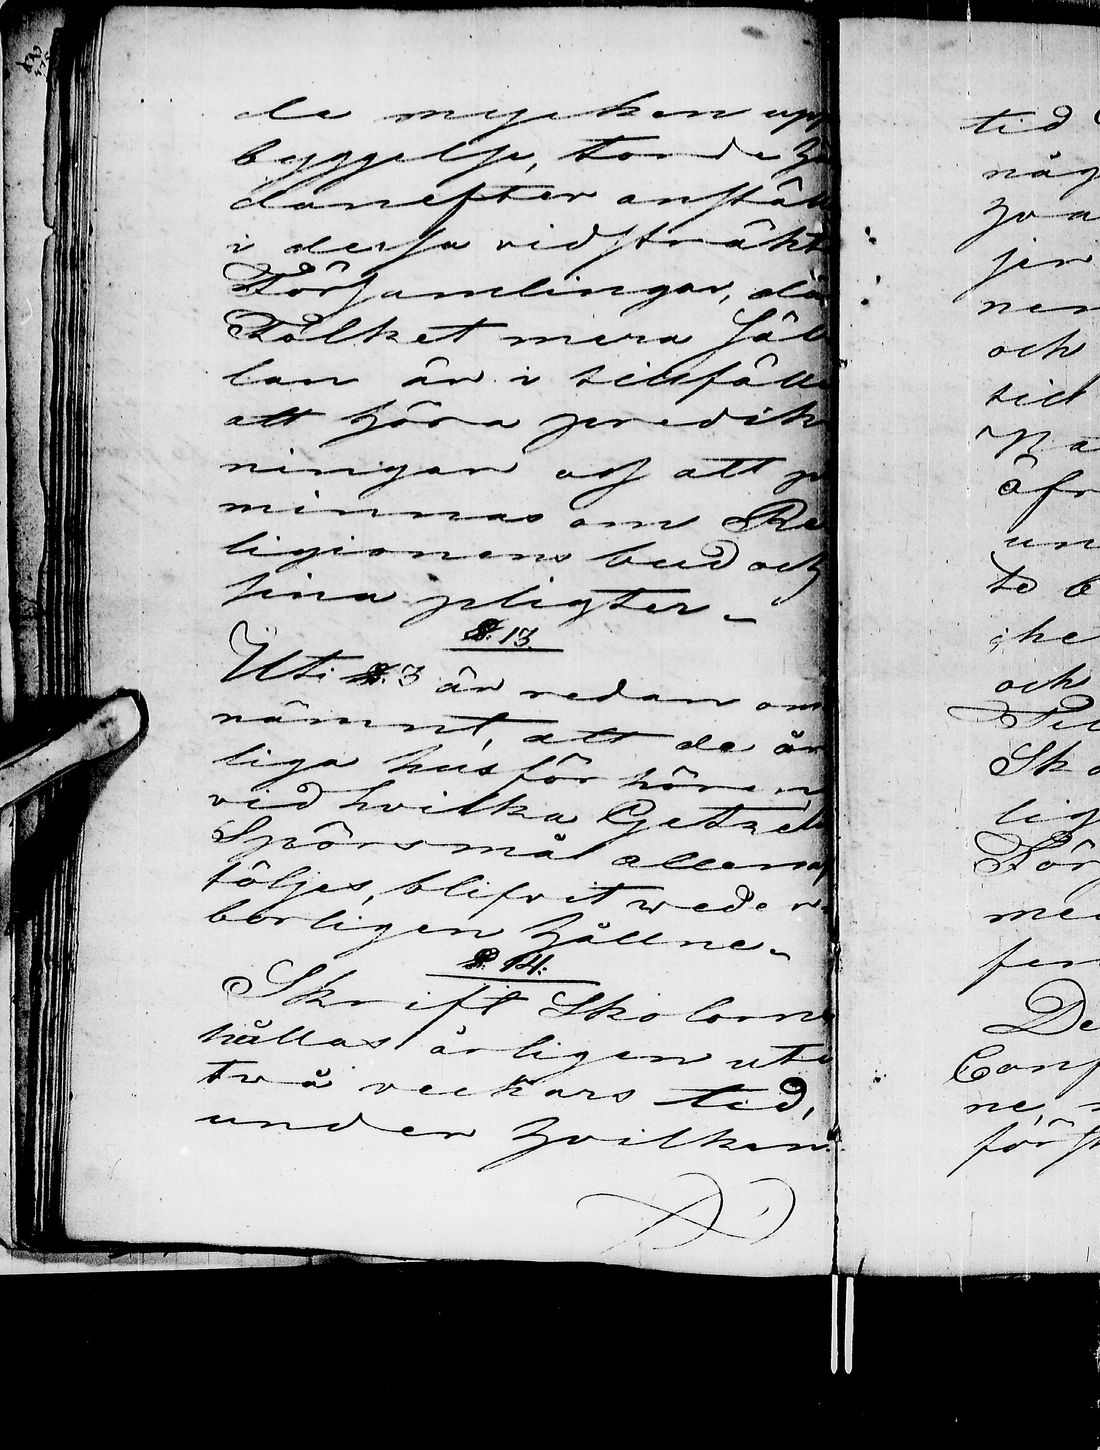 de mycken upp
byggelse, torde hä
danefter anstäl
i dessa vidsträkte
Församlingar, då
Folket mera säl
lan är i tillfälle
att höra predik
ningar och att på
minnas om Re
ligionens bud och
sina pligter.
§. 13.
Uti §. 3 är redan om
nämnt, att de år
liga husförhören,
vid hvilka Getzel
Spörsmål allena
följes, blifvit weder
börligen hållne.
§. 14.
Skrift Skolorne
hållas årligen uti
två veckors tid,
under hvilken
tid
någ
hva
jer
nen
och
till
Na
öfr
un
te
he
och
Sko
lig
För
med
fer
De
Conf
ne,
först